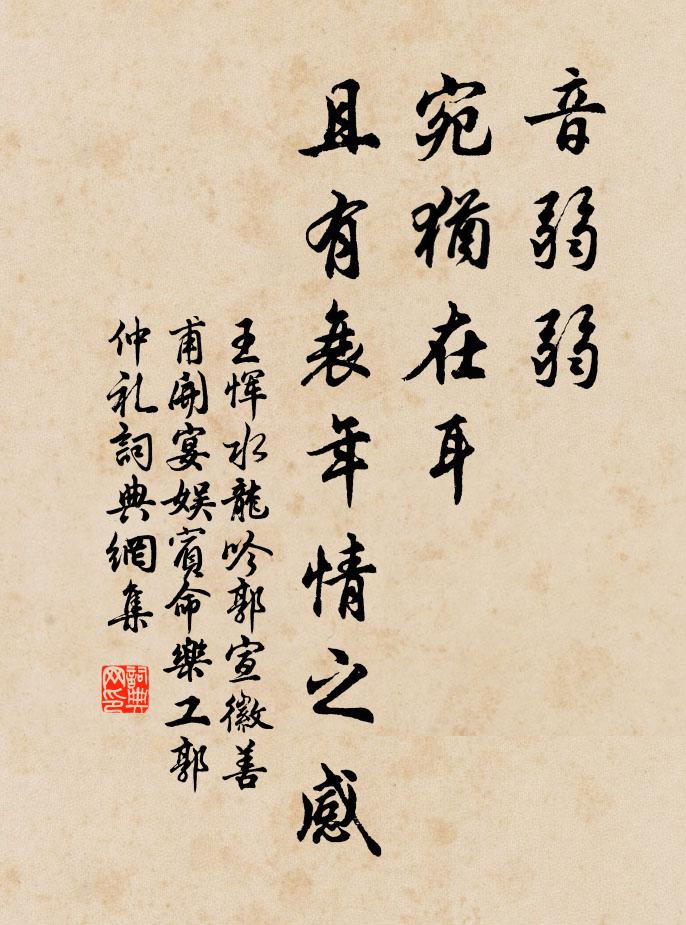 音弱弱
宛猶在耳
且有衰年情之感
王惲水龍吟郭宣徽善
甫開宴娱賓命樂工郭
仲礼詞典網集
詞典
网印